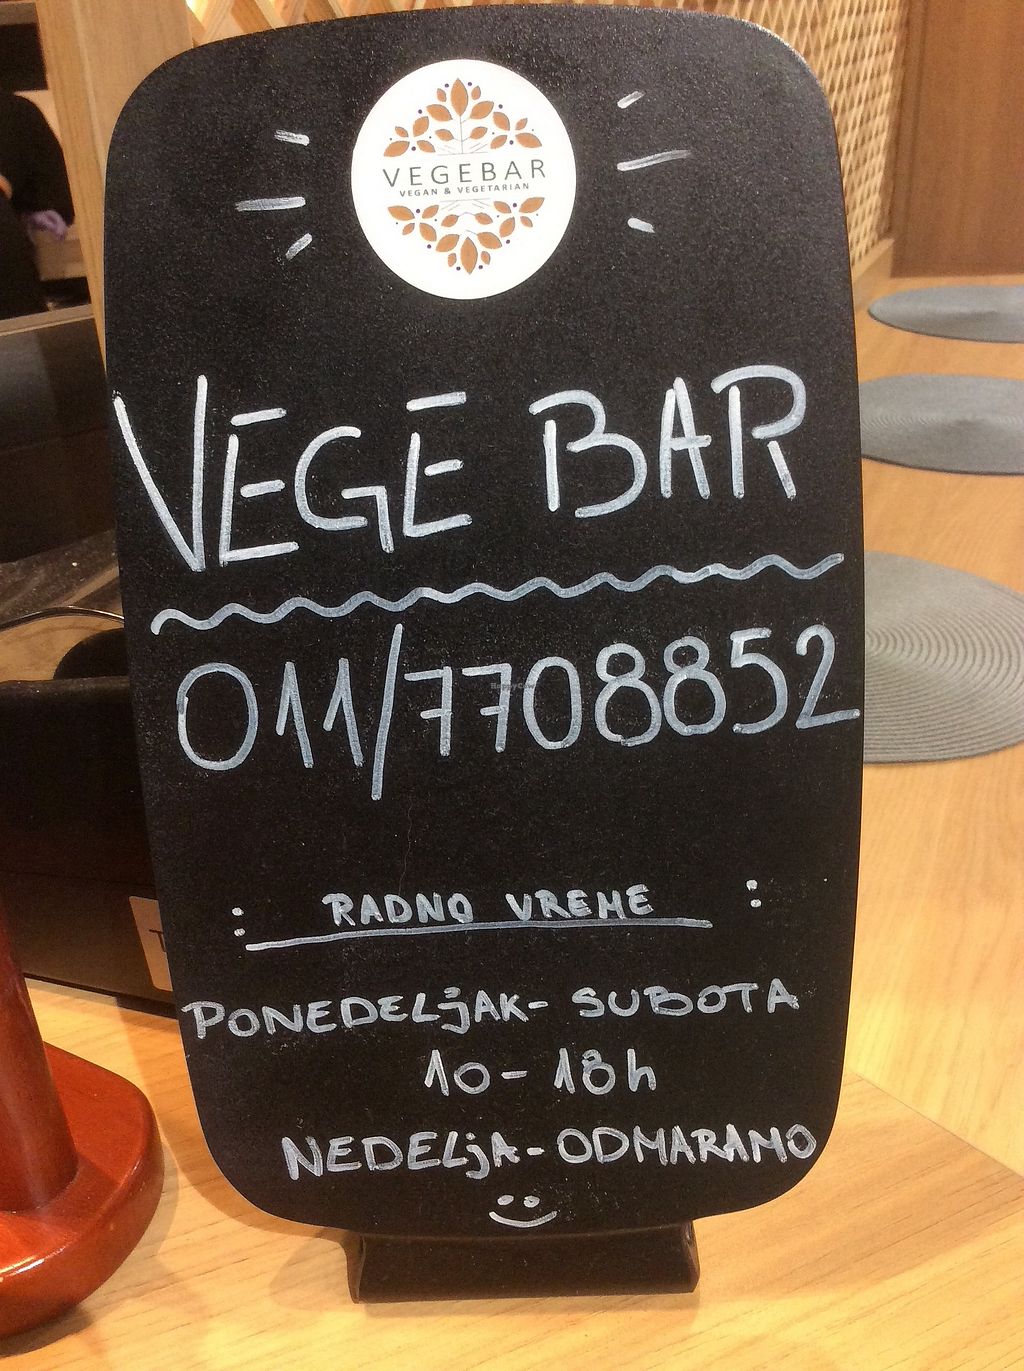 VEGEBAR
VEGAN & VEGETARIAN
VEGE BAR
011/7708852
: RADNO VREME :
PONEDELjAK- SUBOTA
10-18h
NEDELjA-ODMARAMO